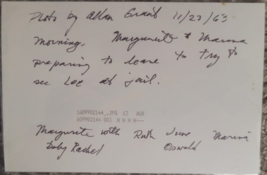 Photo by Allan Grant 11/23/63
morning. Marguerite & Marina
preparing to leave to try to
see Lee at jail.
Marguerite with Ruth June Marina
Baby Rachel Oswald